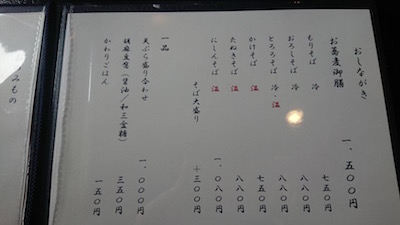 おしながき
お蕎麦御膳 一、五〇〇円
もりそば 冷 七五〇円
おろしそば 冷 八八〇円
とろろそば 冷・温 八八〇円
かけそば 温 七五〇円
たぬきそば 温 八八〇円
にしんそば 温 一、〇八〇円
そば大盛り +三〇〇円
一品
天ぷら盛り合わせ 一、〇〇〇円
胡麻豆腐(醤油/和三盆糖) 三五〇円
かわりごはん 一五〇円
みもの